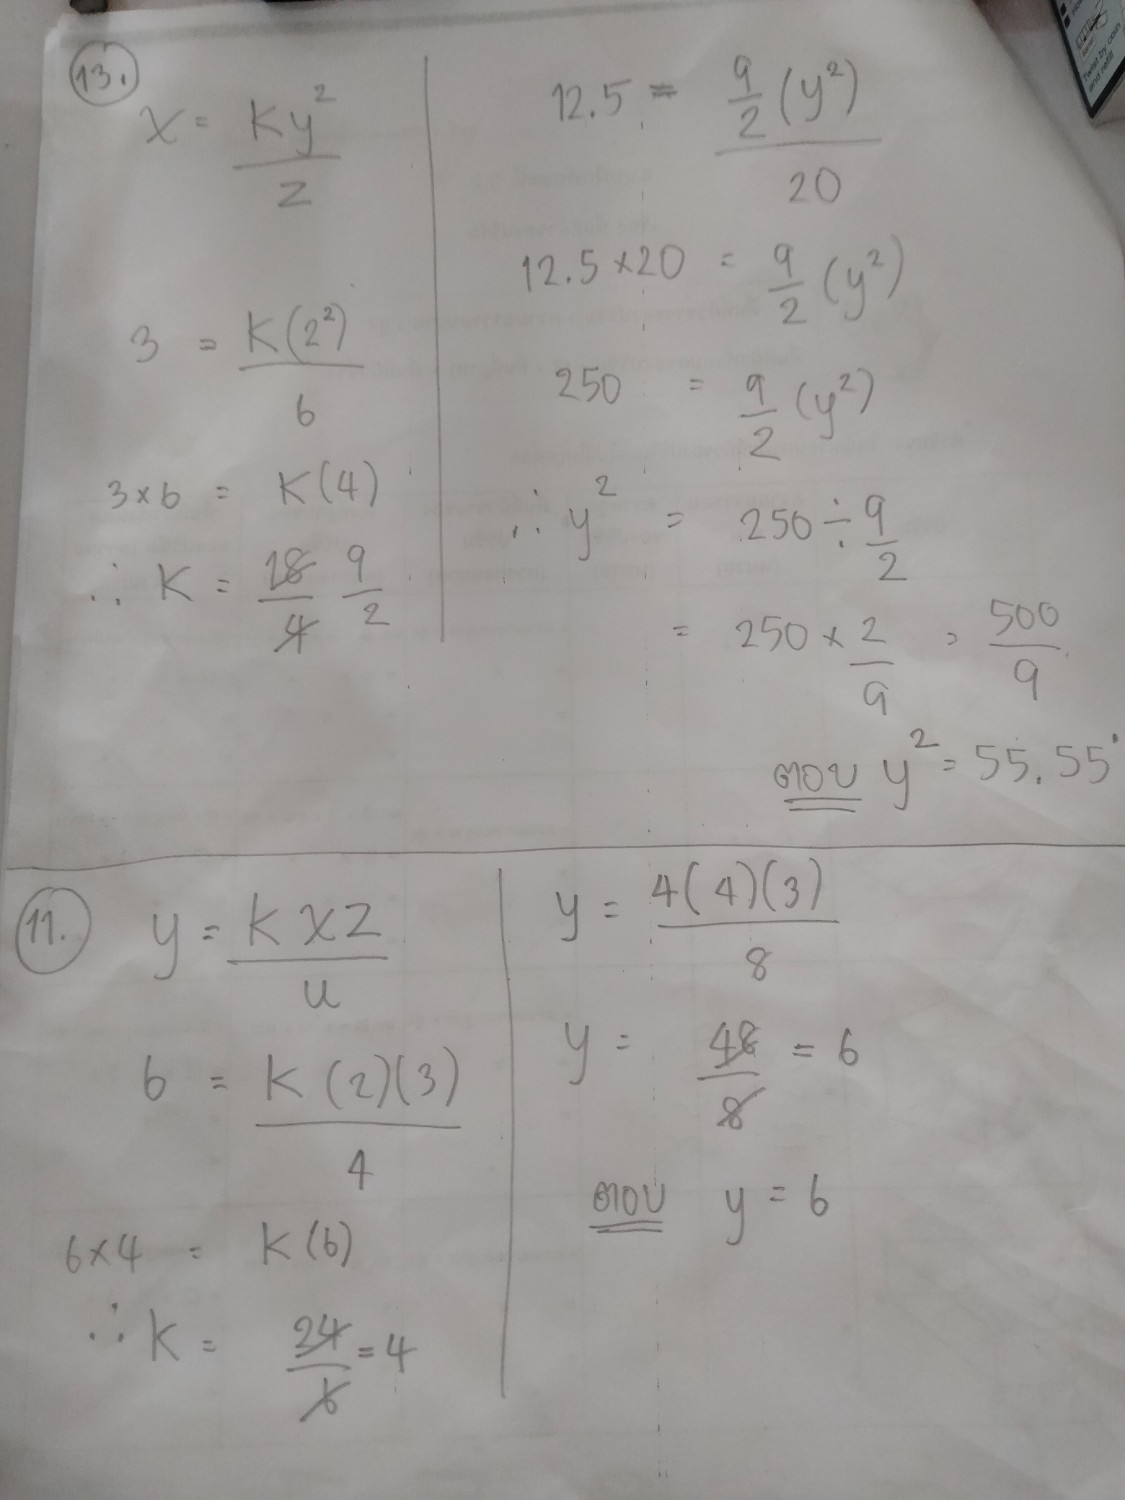 13.
x = Ky²/z
3 = K(2²)/6
3×6 = K(4)
∴ K = 18/4 9/2
12.5 = 9/2 (y²)/20
12.5×20 = 9/2 (y²)
250 = 9/2 (y²)
∴ y² = 250 ÷ 9/2
= 250 × 2/9 = 500/9
ตอบ y² = 55.55
11.
y = K x z/u
6 = K (2)(3)/4
6×4 = K(6)
∴ K = 24/6 = 4
y = 4(4)(3)/8
y = 48/8 = 6
ตอบ y = 6